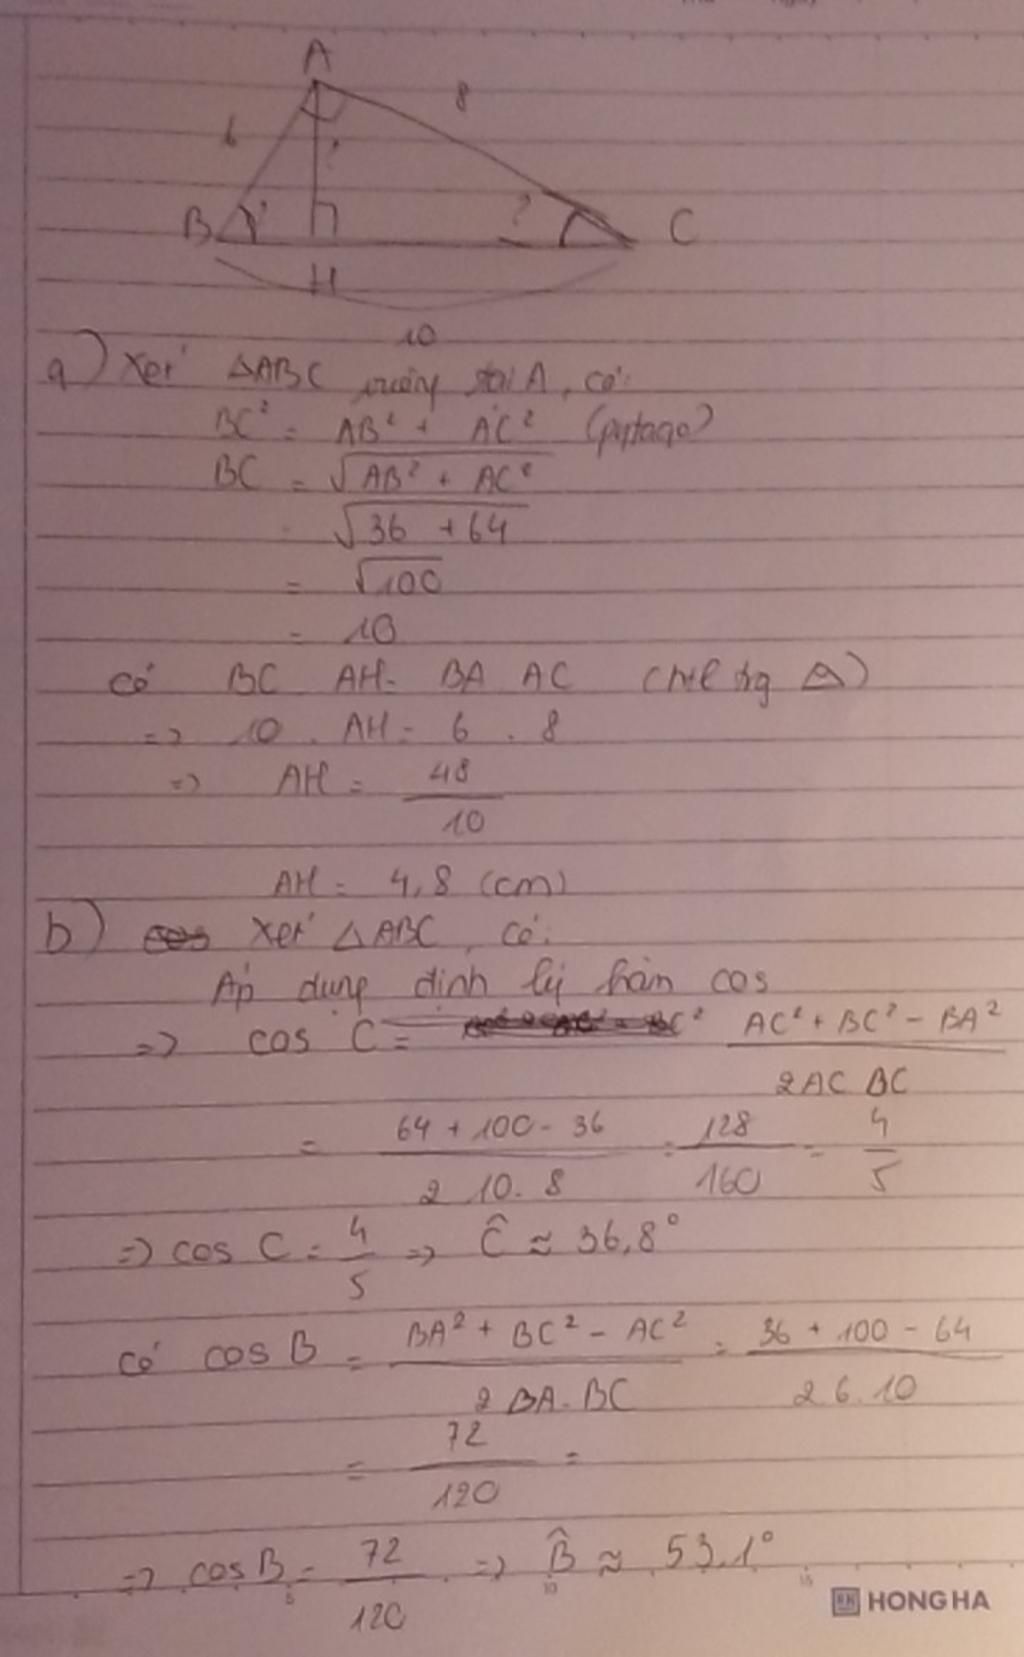 A
6
8
?
B
?
?
C
H
10
a) Xét ΔABC vuông tại A, có:
BC² = AB² + AC² (pytago)
BC = √AB² + AC²
= √36 + 64
= √100
= 10
Có BC AH = BA AC
=> 10 . AH = 6 . 8
=> AH = 48/10
AH = 4,8 (cm)
b) Xét ΔABC, có:
Áp dụng định lý hàm cos
=> cos C = AC² + BC² - BA² / 2AC BC
= 64 + 100 - 36 / 2 10. 8 = 128/160 = 4/5
=> cos C = 4/5 => Ĉ ≈ 36,8°
Có cos B = BA² + BC² - AC² / 2 BA. BC = 36 + 100 - 64 / 2 6 . 10
= 72/120 =
=> cos B = 72/120 => B̂ ≈ 53,1°
5 10 15
HONG HA